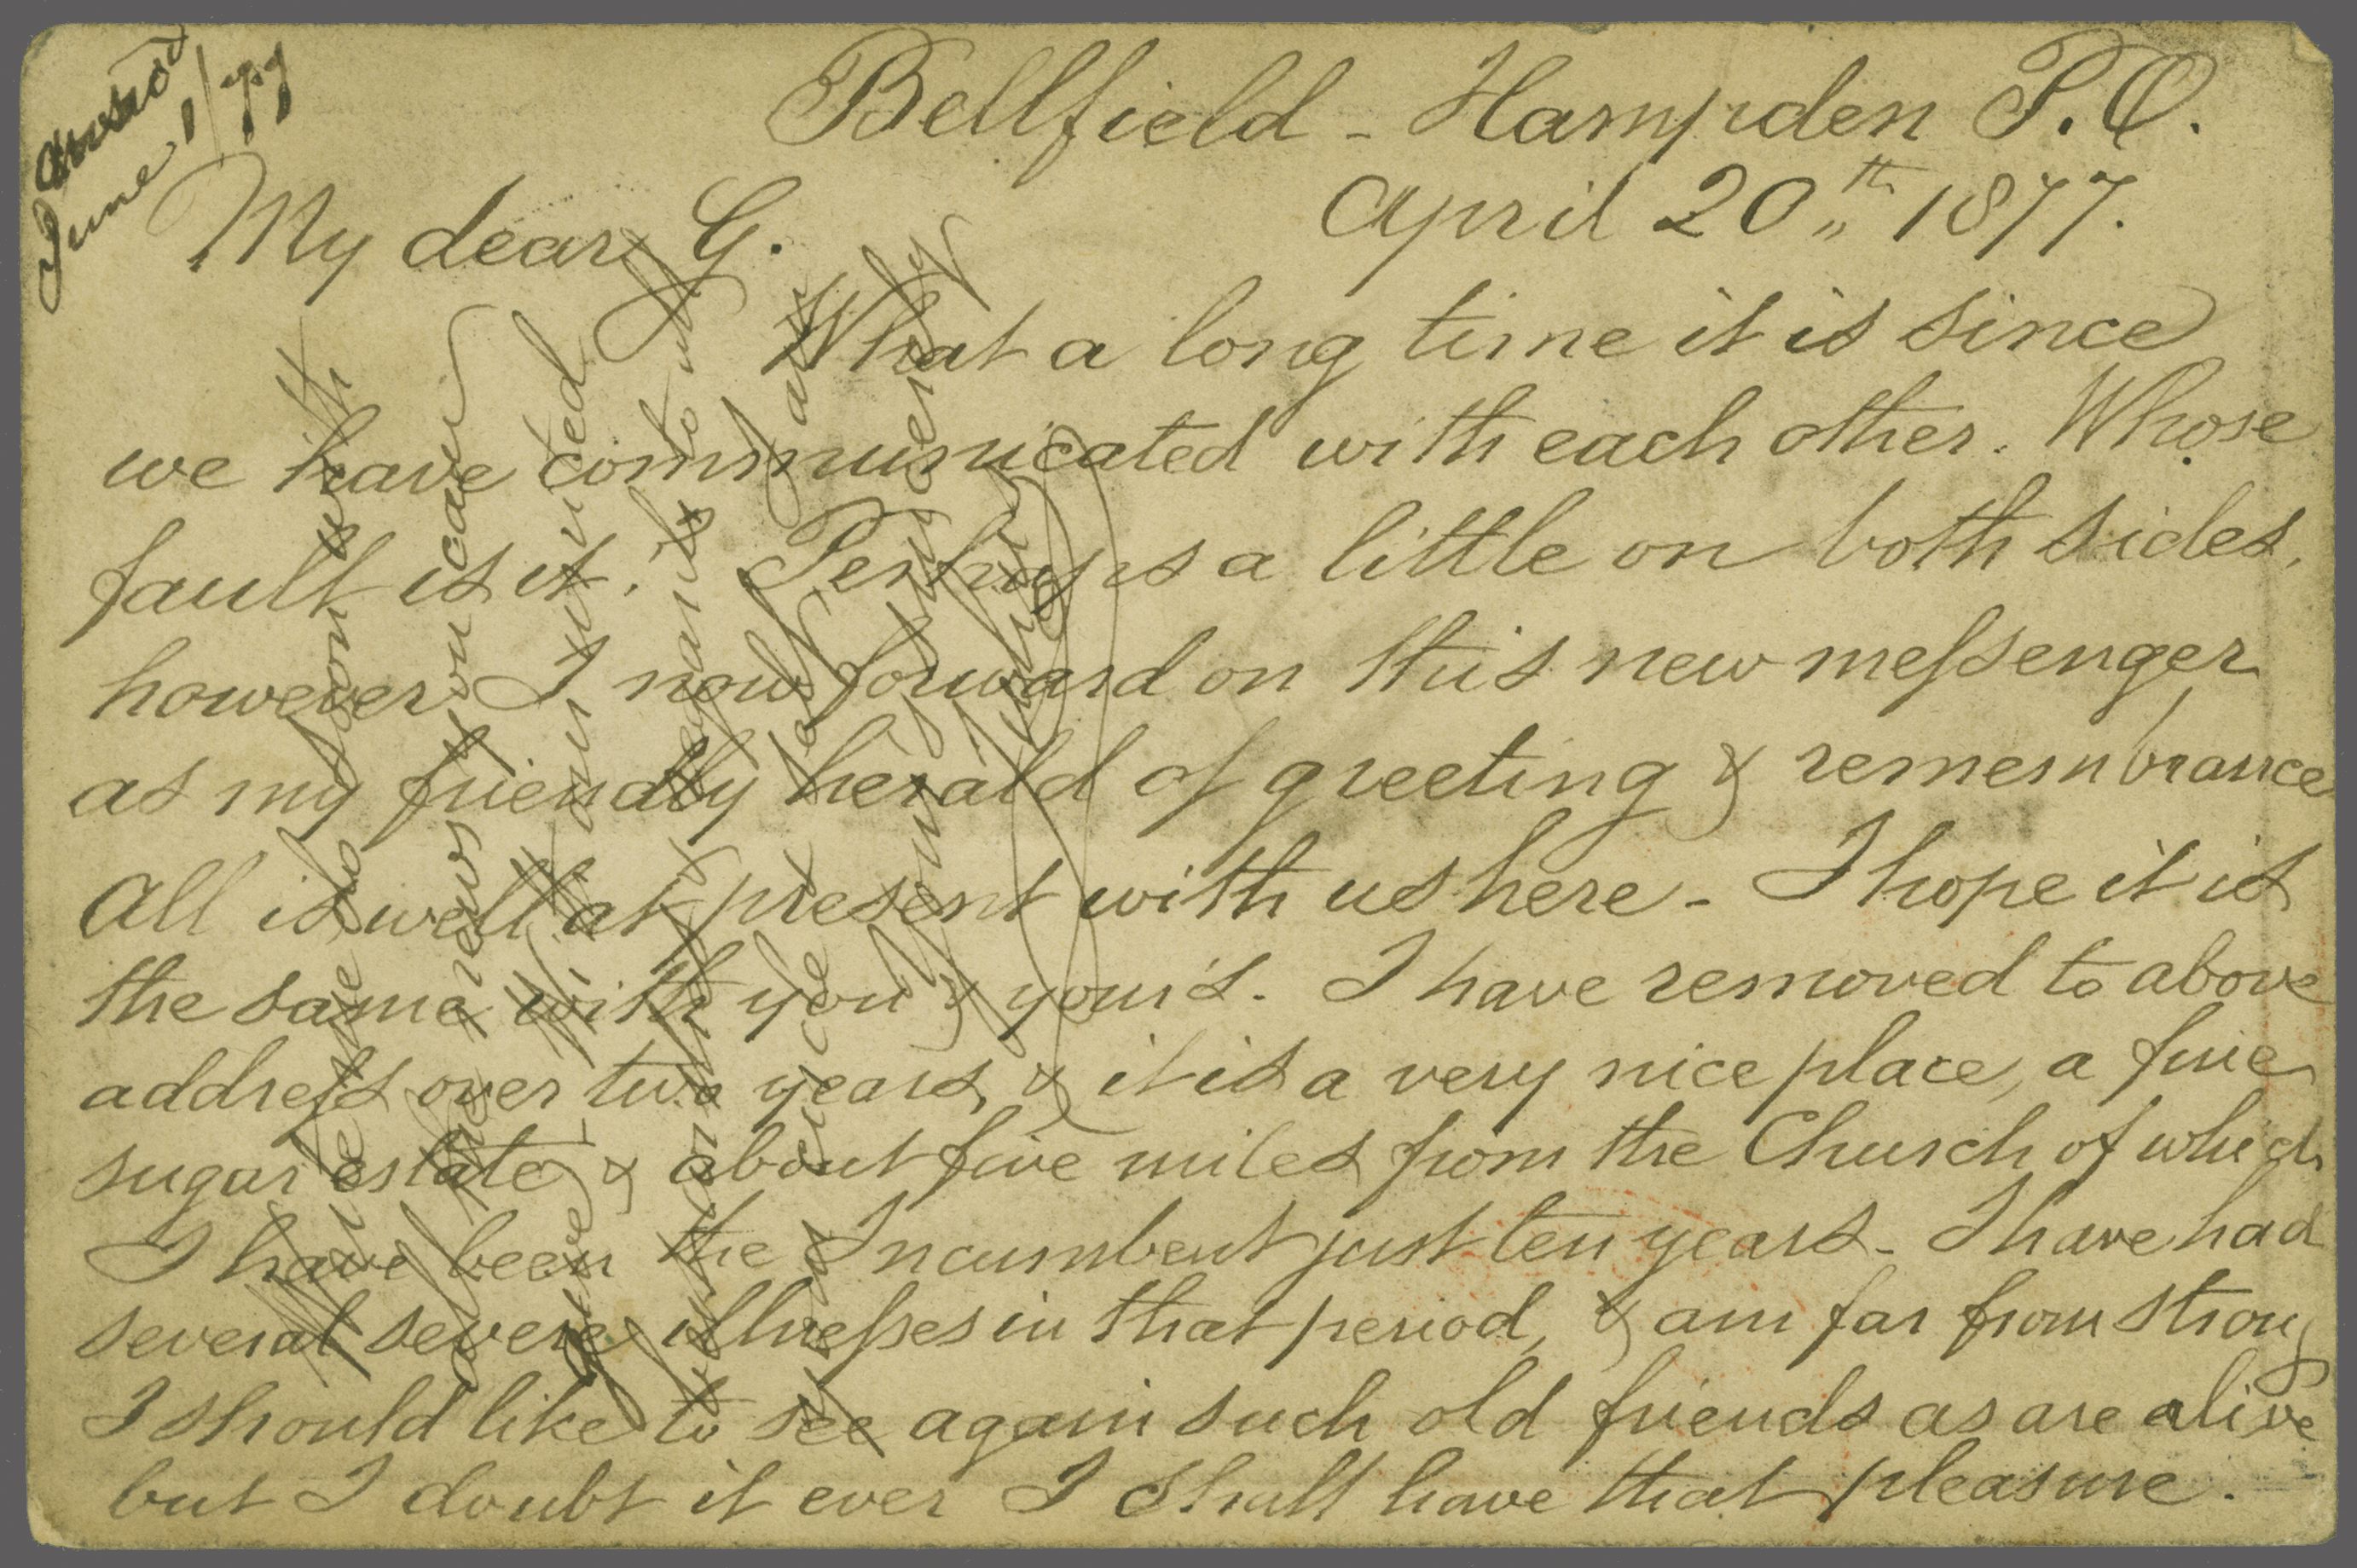 Answd
June 1/77
Bellfield - Hampden P.O.
April 20th 1877.
My dear G.
What a long time it is since
we have communicated with each other. Whose
fault is it? Perhaps a little on both sides.
however I now forward on this new messenger
as my friendly herald of greeting & remembrance
All is well at present with us here - I hope it is
the same with you & your's. I have removed to above
address over two years, & it is a very nice place, a fine
sugar estate & about five miles from the Church of which
I have been the Incumbent just ten years - I have had
several severe illnesses in that period, & am far from strong
I should like to see again such old friends as are alive
but I doubt if ever I shall have that pleasure.
Write me soon with
all the news you can
give - With united
kind regards to
since
Yours sincerely